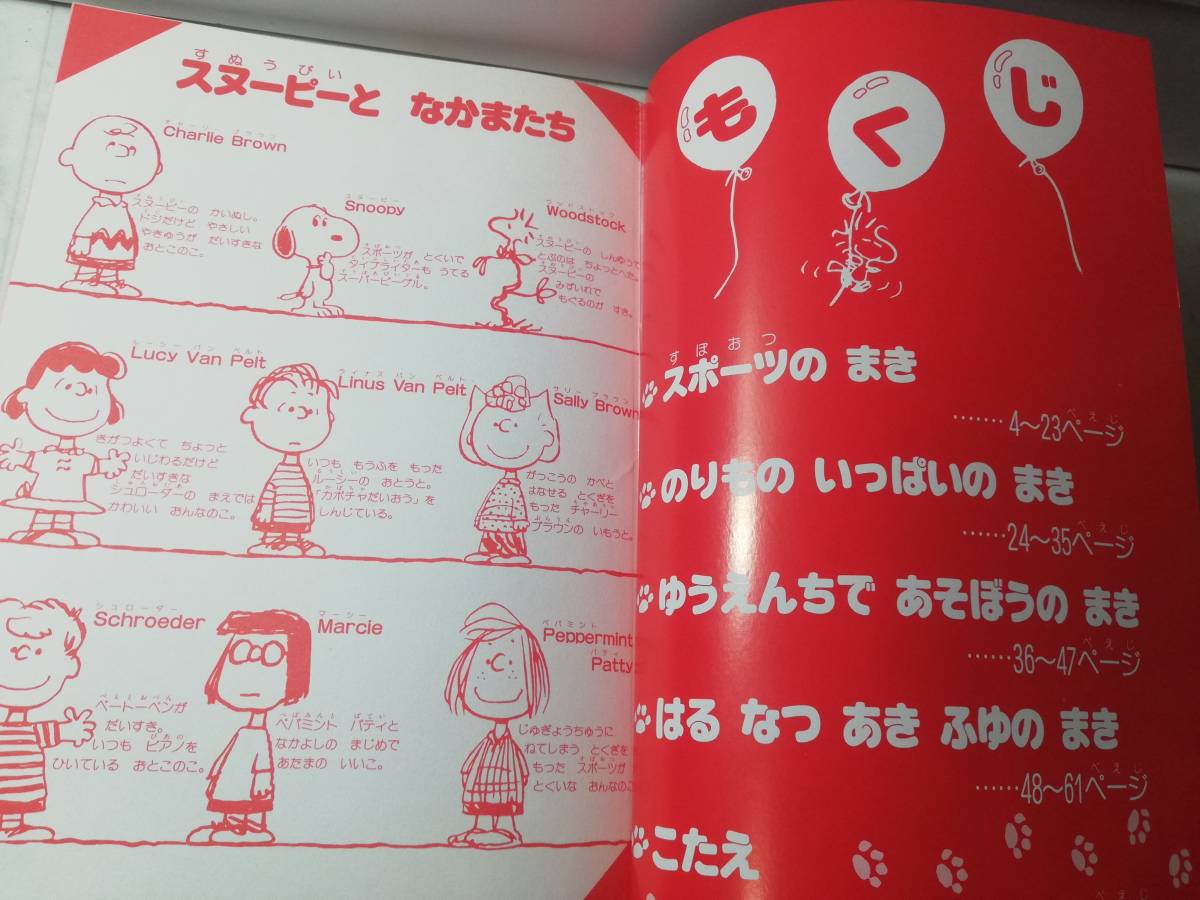 すぬうぴい
スヌーピーと なかまたち
チャーリー ブラウン
Charlie Brown
スヌーピーの かいぬし。
ドジだけど やさしい
やきゅうが だいすきな
おとこのこ。
スヌーピー
Snoopy
スポーツが とくいで
タイプライターも うてる
スーパービーグル。
ウッドストック
Woodstock
スヌーピーの しんゆうで
とぶのは ちょっとへた。
スヌーピーの
みずいれで
もぐるのが すき。
ルーシー バン ペルト
Lucy Van Pelt
きがつよくて ちょっと
いじわるだけど
だいすきな
シュローダーの まえでは
かわいい おんなのこ。
ライナス バン ペルト
Linus Van Pelt
いつも もうふを もった
ルーシーの おとうと。
「カボチャだいおう」を
しんじている。
サリー ブラウン
Sally Brown
がっこうの かべと
はなせる とくぎを
もった チャーリー
ブラウンの いもうと。
シュローダー
Schroeder
べえとおべん
ベートーベンが
だいすき。
いつも ピアノを
ひいている おとこのこ。
マーシー
Marcie
ペパミント パティと
なかよしの まじめで
あたまの いいこ。
ペパミント
Peppermint
パティ
Patty
じゅぎょうちゅうに
ねてしまう とくぎを
もった スポーツが
とくいな おんなのこ
もくじ
すぽおつ
スポーツの まき
ぺえじ
……4〜23ページ
のりもの いっぱいの まき
ぺえじ
……24〜35ページ
ゆうえんちで あそぼうの まき
ぺえじ
……36〜47ページ
はる なつ あき ふゆの まき
ぺえじ
……48〜61ページ
こたえ
ぺえじ